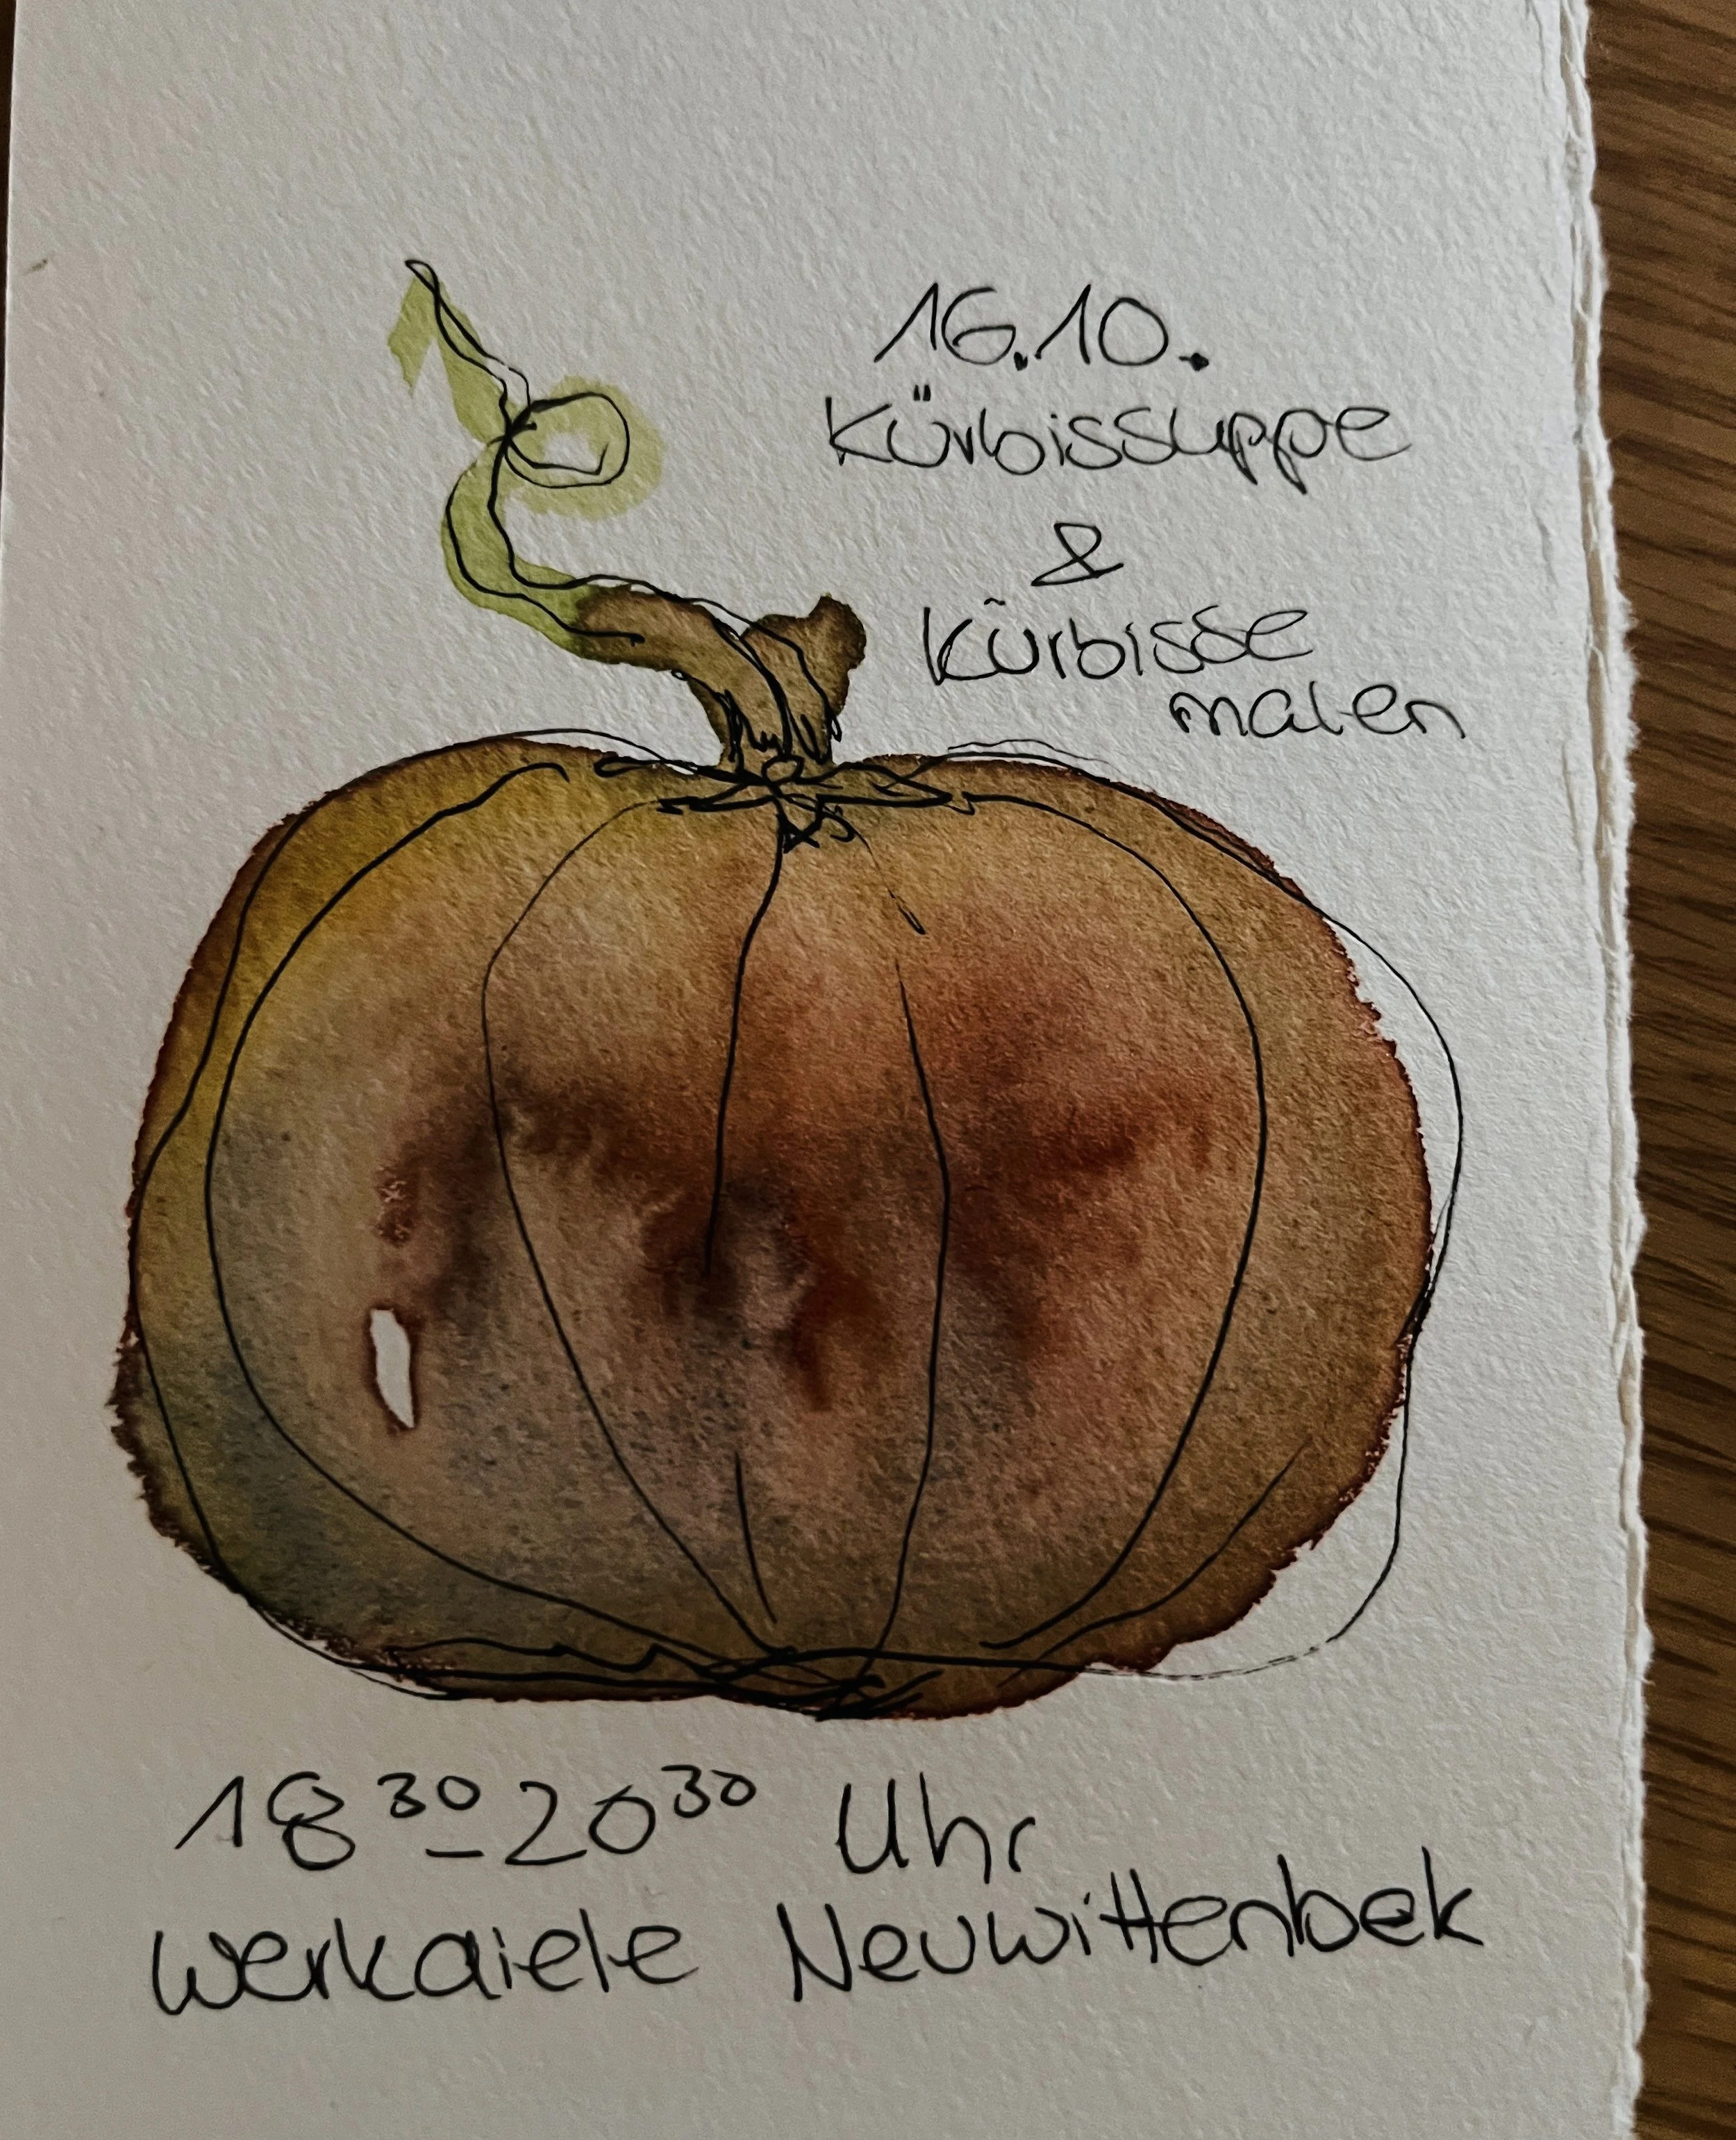 16.10.
Kürbissuppe
&
Kürbisse
malen
18³⁰–20³⁰ Uhr
Werkdiele Neuwittenbek